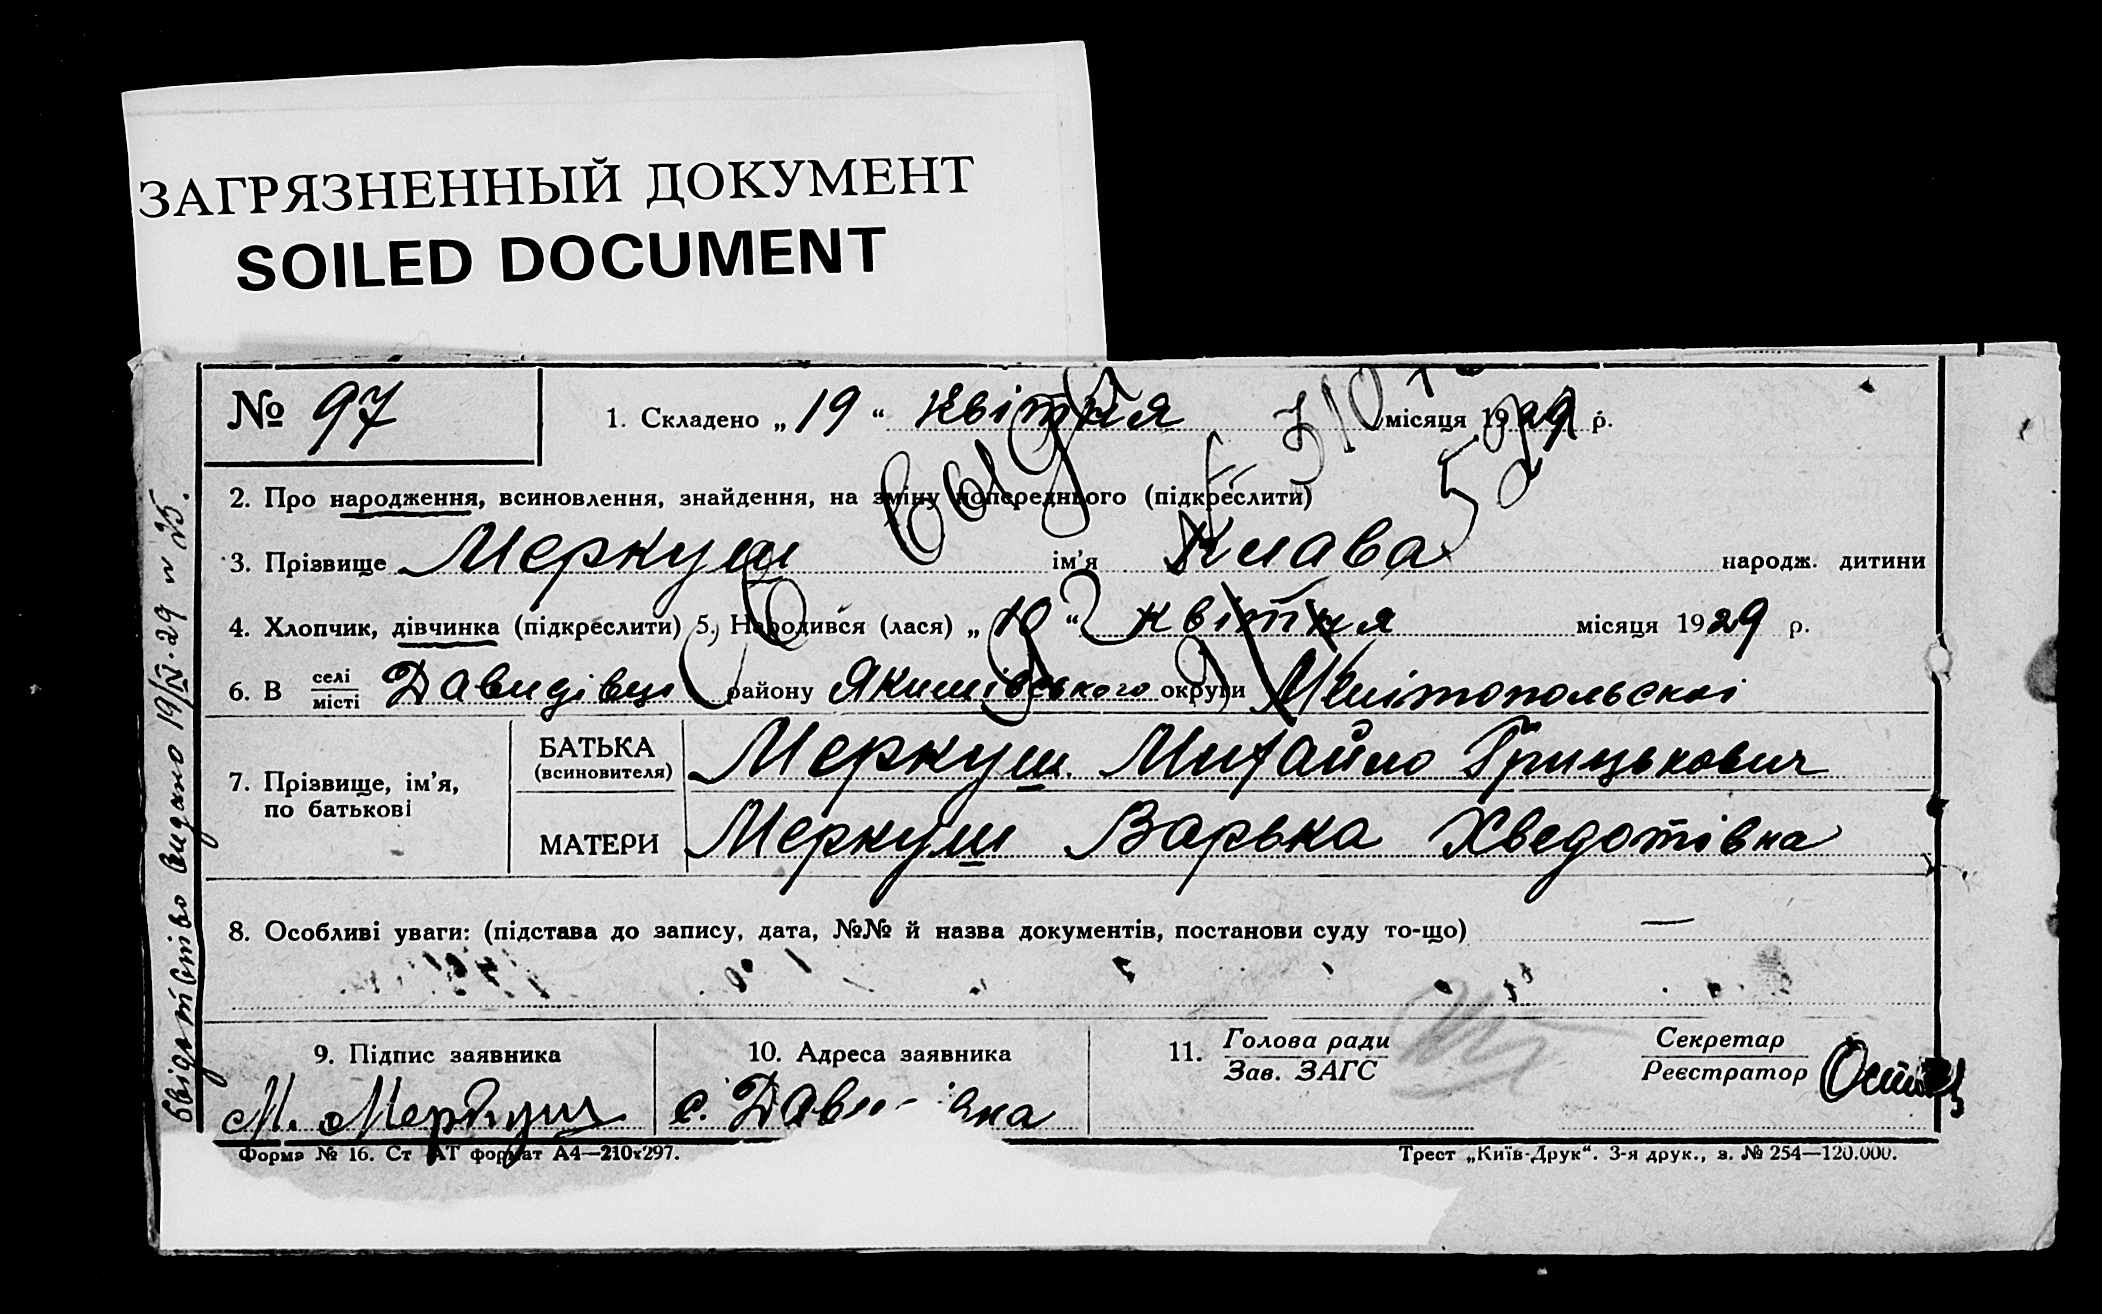 ЗАГРЯЗНЕННЫЙ ДОКУМЕНТ
SOILED DOCUMENT
№ 97
1. Складено „ 19 “ квітня місяця 1929 р.
2. Про народження, всиновлення, знайдення, на зміну попереднього (підкреслити)
3. Прізвище Меркуш ім'я Клава народж. дитини
4. Хлопчик, дівчинка (підкреслити) 5. Народився (лася) „ 10 “ квітня місяця 1929 р.
6. В селі місті Давидівці району Якимівського округи Мелітопольскої
7. Прізвище, ім'я, по батькові
БАТЬКА (всиновителя) Меркуш Михайло Грицькович
МАТЕРИ Меркуш Варька Хведотівна
8. Особливі уваги: (підстава до запису, дата, №№ й назва документів, постанови суду то-що) —
9. Підпис заявника
М. Меркуш
10. Адреса заявника
с.
11. Голова ради
Зав. ЗАГС
Секретар
Реєстратор
Форма № 16. Ст АТ формат А4—210х297.
Трест „Київ-Друк“. 3-я друк., з. № 254—120.000.
Свідоптство видано 19/IV.29 N 25.